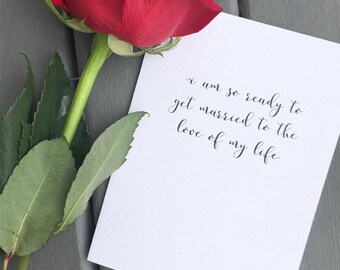 i am so ready to
get married to the
love of my life